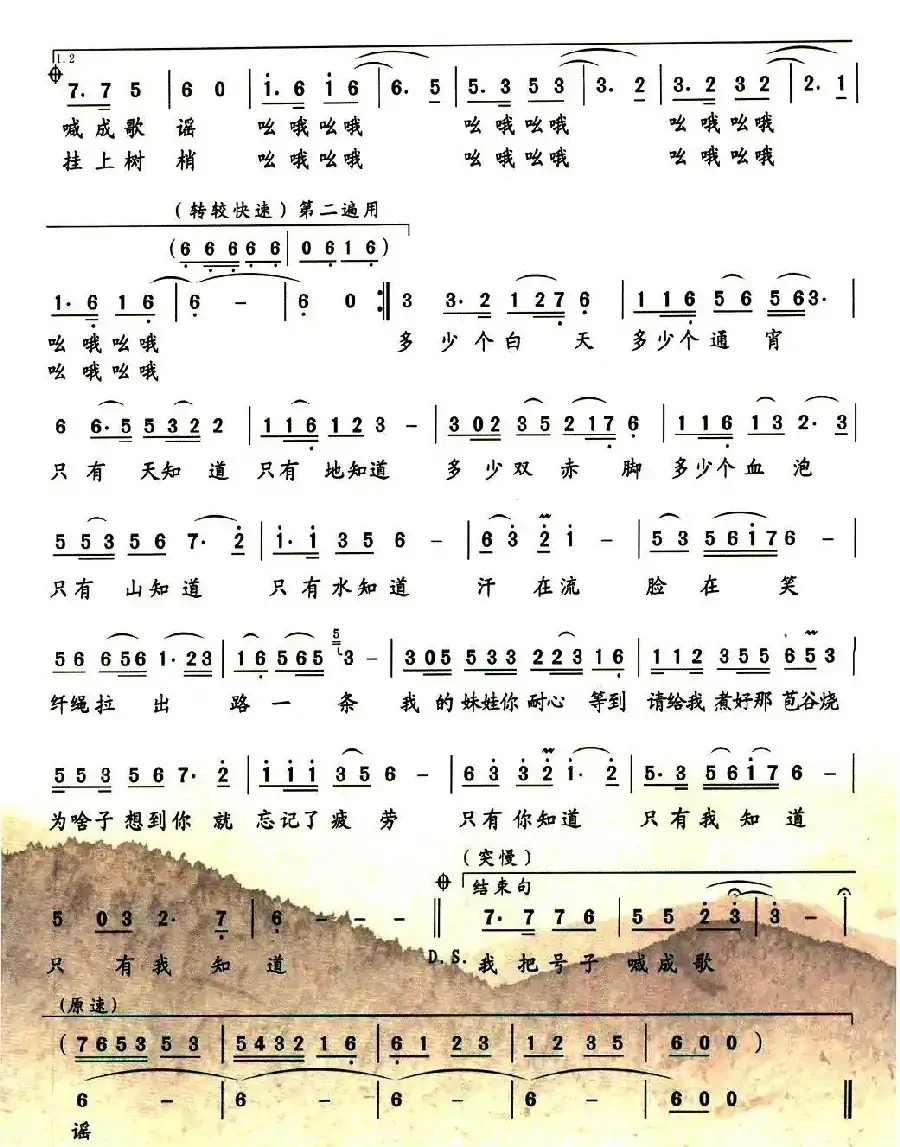 1.2
7. 7 5 | 6 0 | 1. 6 1 6 | 6. 5 | 5. 3 5 3 | 3. 2 | 3. 2 3 2 | 2. 1
喊成歌谣 吆哦吆哦 吆哦吆哦 吆哦吆哦
挂上树梢 吆哦吆哦 吆哦吆哦 吆哦吆哦
(转较快速)第二遍用
(6 6 6 6 6 | 0 6 1 6)
1. 6 1 6 | 6 - | 6 0 :|| 3 3. 2 1 2 7 6 | 1 1 6 5 6 5 6 3. |
吆哦吆哦 多少个白天 多少个通宵
吆哦吆哦
6 6. 5 5 3 2 2 | 1 1 6 1 2 3 - | 3 0 2 3 5 2 1 7 6 | 1 1 6 1 3 2. 3 |
只有天知道 只有地知道 多少双赤脚 多少个血泡
5 5 3 5 6 7. 2 | 1. 1 3 5 6 - | 6 3 2 1 - | 5 3 5 6 1 7 6 - |
只有山知道 只有水知道 汗在流 脸在笑
5
5 6 6 5 6 1. 2 3 | 1 6 5 6 5 3 - | 3 0 5 5 3 3 2 2 3 1 6 | 1 1 2 3 5 5 6 5 3 |
纤绳拉出路一条 我的妹娃你耐心等到 请给我煮好那苞谷烧
5 5 3 5 6 7. 2 | 1 1 1 3 5 6 - | 6 3 3 2 1. 2 | 5. 3 5 6 1 7 6 - |
为啥子想到你就忘记了疲劳 只有你知道 只有我知道
(突慢)
结束句
5 0 3 2. 7 | 6 - - - || 7. 7 7 6 | 5 5 2 3 | 3 - |
只有我知道 D.S. 我把号子喊成歌
(原速)
(7 6 5 3 5 3 | 5 4 3 2 1 6 | 6 1 2 3 | 1 2 3 5 | 6 0 0)
6 - | 6 - | 6 - | 6 - | 6 0 0 ||
谣